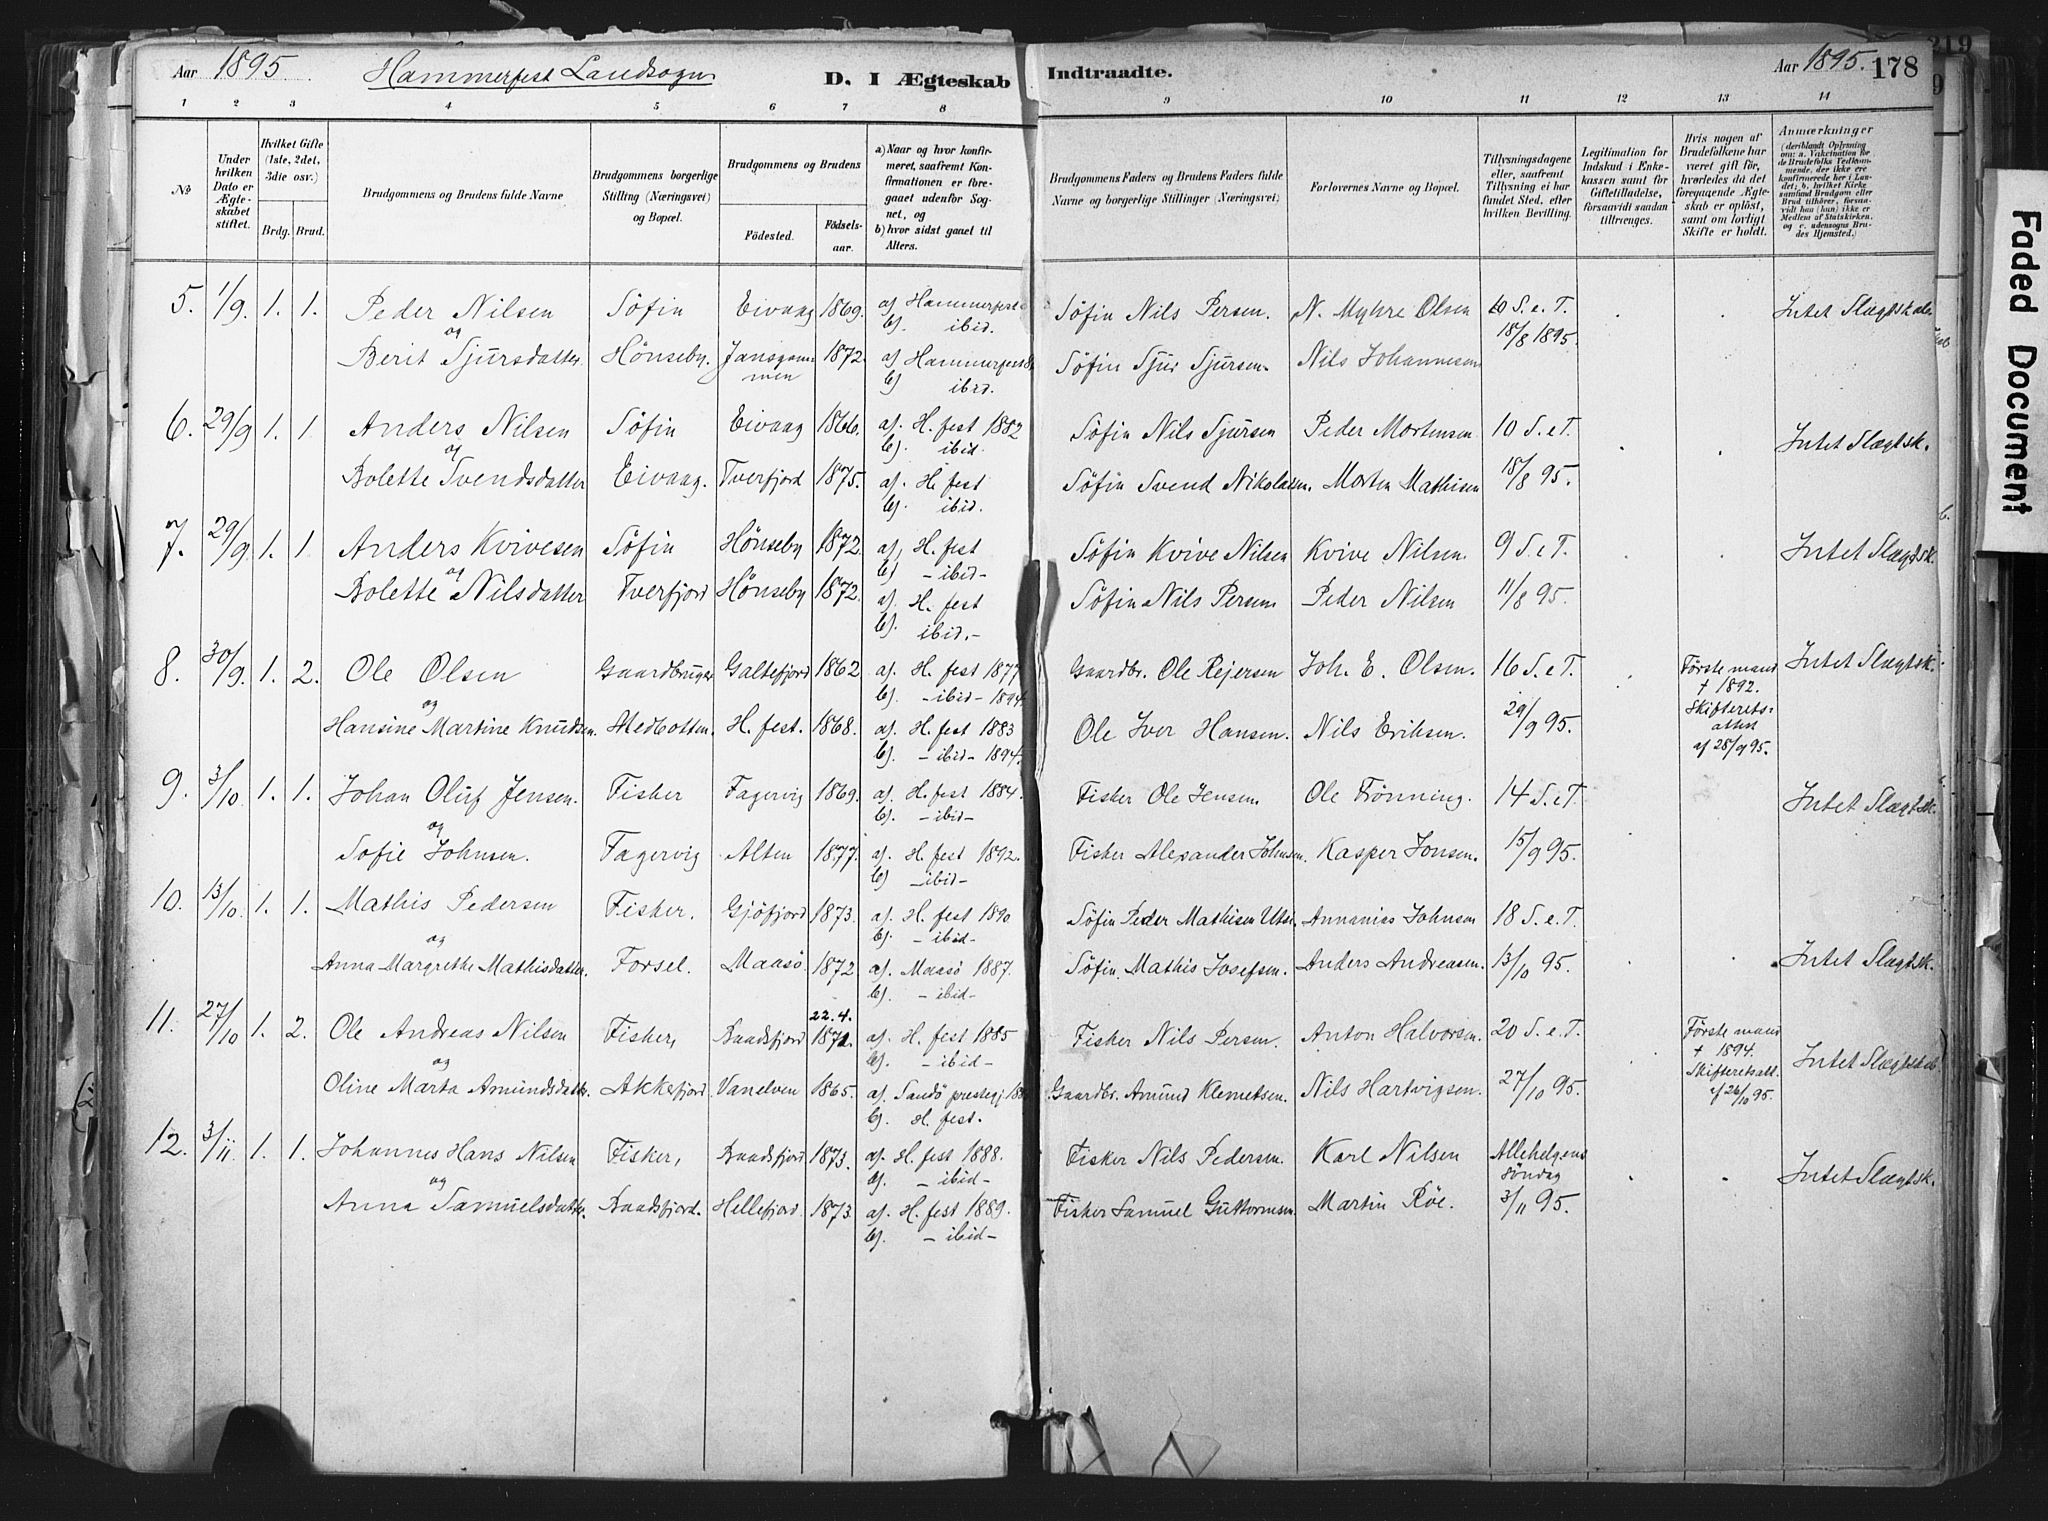 Aar 1895. Hammerfest Landsogn D. I Ægteskab Indtraadte. Aar 1895. 178
219
9
1 2 3 4 5 6 7 8 9 10 11 12 13 14
№
Under hvilken Dato er Ægteskabet stiftet.
Hvilket Gifte (1ste, 2det, 3die osv.)
Brdg. Brud.
Brudgommens og Brudens fulde Navne
Brudgommens borgerlige Stilling (Næringsvei) og Bopæl.
Brudgommens og Brudens
Fødested. Fødselsaar.
a) Naar og hvor konfirmeret, saafremt Konfirmationen er foregaaet udenfor Sognet, og
b) hvor sidst gaaet til Alters.
Brudgommens Faders og Brudens Faders fulde Navne og borgerlige Stillinger (Næringsvei)
Forlovernes Navne og Bopæl.
Tillysningsdagene eller, saafremt Tillysning ei har fundet Sted, efter hvilken Bevilling.
Legitimation for Indskud i Enkekassen samt for Giftetilladelse, forsaavidt saadan tiltrænges.
Hvis nogen af Brudefolkene har været gift før, hvorledes da det foregaaende Ægteskab er opløst, samt om lovligt Skifte er holdt.
Anmærkninger (deriblandt Oplysning om: a. Vakcination for de Brudefolks Vedkommende, der ikke ere konfirmerede her i Landet; b. hvilket Kirkesamfund Brudgom eller Brud tilhører, forsaavidt han (hun) ikke er Medlem af Statskirken, og c. udensogns Brudes Hjemsted.)
Faded Document
5. 1/9. 1. 1. Peder Nilsen Söfin Eivaag 1869. a) Hammerfest Söfin Nils Persen. N. Myhre Olsen 10 S. e. T. Intet Slægtsk
og b). ibid. 18/8 1895.
Berit Sjursdatter Hönseby. Jansgammen 1872. a) Hammerfest Söfin Sjur Sjursen. Nils Johannesen
b) ibid.
6. 29/9 1. 1. Anders Nilsen Söfin Eivaag 1866. a). H. fest 1882 Söfin Nils Sjursen Peder Mortensen 10 S. e. T. Intet Slægtsk.
og b). ibid.
Bolette Svendsdatter Eivaag. Tverfjord 1875. a). H. fest Söfin Svend Nikolaisen. Morten Mathisen 18/8 95.
b). ibid.
7. 29/9. 1. 1. Anders Kvivesen Söfin Hönseby 1872. a). H. fest Söfin Kvive Nilsen Kvive Nilsen. 9 S. e T. Intet Slægtsk.
og b) – ibid –
Bolette Nilsdatter Tverfjord Hönseby 1872. a). H. fest Söfin Nils Persen Peder Nilsen 11/8 95.
b). ibid. –
8. 30/9. 1. 2. Ole Olsen Gaardbruger Galtefjord 1862 a). H. fest 1877 Gaardbr. Ole Rejersen Joh. E. Olsen. 16 S. e T. Förste mand † 1892. Skifteretsattest af 28/9 95. Intet Slægtsk.
og b). – ibid – 1894.
Hansine Martine Knudsen. Medbotten. H. fest. 1868. a). H. fest 1883 Ole Iver Hansen. Nils Eriksen. 29/9 95.
b). – ibid – 1894.
9. 3/10. 1. 1. Johan Oluf Jensen. Fisker Fagervig 1869. a). H. fest 1884. Fisker Ole Jensen Ole Trönning. 14 S. e T. Intet Slægtsk.
og b). – ibid –
Sofie Johnsen. Fagervig Alten 1877. a). H. fest 1892. Fisker Alexander Johnsen. Kasper Jonsen. 15/9 95.
b) – ibid –
10. 13/10. 1. 1. Mathis Pedersen Fisker. Gjöfjord 1873. a). H. fest 1890 Söfin Peder Mathisen Utsi. Annanias Johnsen 18 S. e. T.
og b). – ibid –
Anna Margrethe Mathisdatter. Forsøl. Maasö 1872 a). Maasö 1887. Söfin Mathis Josefsen. Anders Andreasen. 13/10 95. Intet Slægtsk.
b). – ibid –
11. 27/10 1. 2. Ole Andreas Nilsen Fisker, Baadsfjord 22.4. 1871. a). H. fest 1885 Fisker Nils Persen. Anton Halvorsen. 20 S. e. T. Förste mand † 1894. Skifteretsatt. af 26/10 95. Intet Slægtsk
og b). – ibid –
Oline Marta Amundsdatter. Akkefjord. Vanelven 1865. a). Sandö prestegj. Gaardbr. Amund Klemetsen. Nils Hartvigsen. 27/10 95.
b). H. fest.
12. 3/11. 1. 1. Johannes Hans Nilsen Fisker, Baadsfjord 1873. a). H. fest 1888. Fisker Nils Pedersen. Karl Nilsen Allehelgens Söndag Intet Slægtsk.
og b). – ibid –
Anna Samuelsdatter. Baadsfjord. Hellefjord 1873. a). H. fest 1889. Fisker Samuel Guttormsen. Martin Röe. 3/11 95.
b). – ibid –